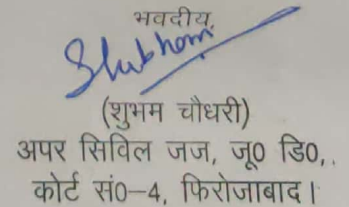 भवदीय,
Shubham
(शुभम चौधरी)
अपर सिविल जज, जू0 डि0,.
कोर्ट सं0–4, फिरोजाबाद।